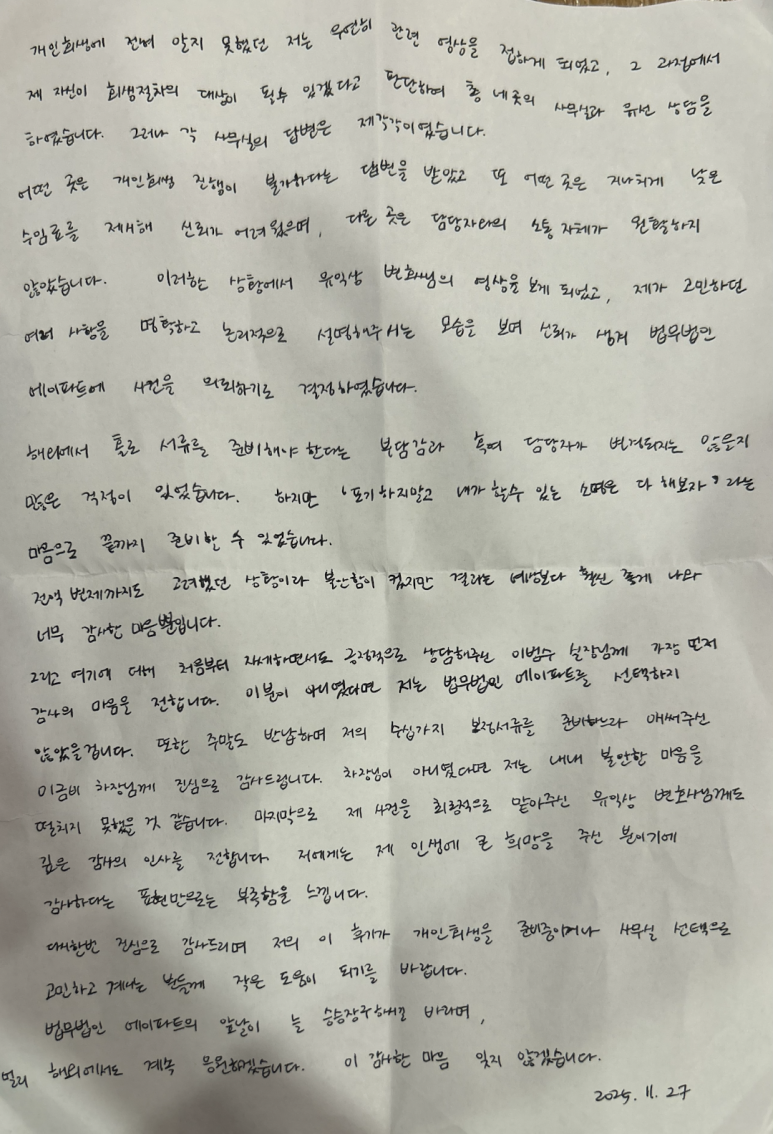 개인회생에 전혀 알지 못했던 저는 우연히 관련 영상을 접하게 되었고, 그 과정에서
제 자신이 회생절차의 대상이 될수 있겠다고 판단하여 총 네곳의 사무실과 유선 상담을
하였습니다. 그러나 각 사무실의 답변은 제각각이였습니다.
어떤 곳은 개인회생 진행이 불가하다는 답변을 받았고 또 어떤 곳은 지나치게 낮은
수임료를 제시해 신뢰가 어려웠으며, 다른 곳은 담당자와의 소통 자체가 원활하지
않았습니다. 이러한 상황에서 유익상 변호사님의 영상을 보게 되었고, 제가 고민하던
여러 사항을 명확하고 논리적으로 설명해주시는 모습을 보며 신뢰가 생겨 법무법인
에이파트에 사건을 의뢰하기로 결정하였습니다.
해외에서 홀로 서류를 준비해야 한다는 부담감과 혹여 담당자가 변경되지는 않을지
많은 걱정이 있었습니다. 하지만 '포기하지말고 내가 할수 있는 소명은 다 해보자' 라는
마음으로 끝까지 준비할 수 있었습니다.
전액 변제까지도 고려했던 상황이라 불안함이 컸지만 결과는 예상보다 훨씬 좋게 나와
너무 감사한 마음뿐입니다.
그리고 여기에 대해 처음부터 자세하면서도 긍정적으로 상담해주신 이범수 실장님께 가장 먼저
감사의 마음을 전합니다. 이분이 아니였다면 저는 법무법인 에이파트를 선택하지
않았을겁니다. 또한 주말도 반납하며 저의 수십가지 보정서류를 준비하느라 애써주신
이금비 차장님께 진심으로 감사드립니다. 차장님이 아니였다면 저는 내내 불안한 마음을
떨치지 못했을 것 같습니다. 마지막으로 제 사건을 최종적으로 맡아주신 유익상 변호사님께도
깊은 감사의 인사를 전합니다. 저에게는 제 인생에 큰 희망을 주신 분이기에
감사하다는 표현만으로는 부족함을 느낍니다.
다시한번 진심으로 감사드리며 저의 이 후기가 개인회생을 준비중이거나 사무실 선택으로
고민하고 계시는 분들께 작은 도움이 되기를 바랍니다.
법무법인 에이파트의 앞날이 늘 승승장구하시길 바라며,
멀리 해외에서도 계속 응원하겠습니다. 이 감사한 마음 잊지 않겠습니다.
2025. 11. 27